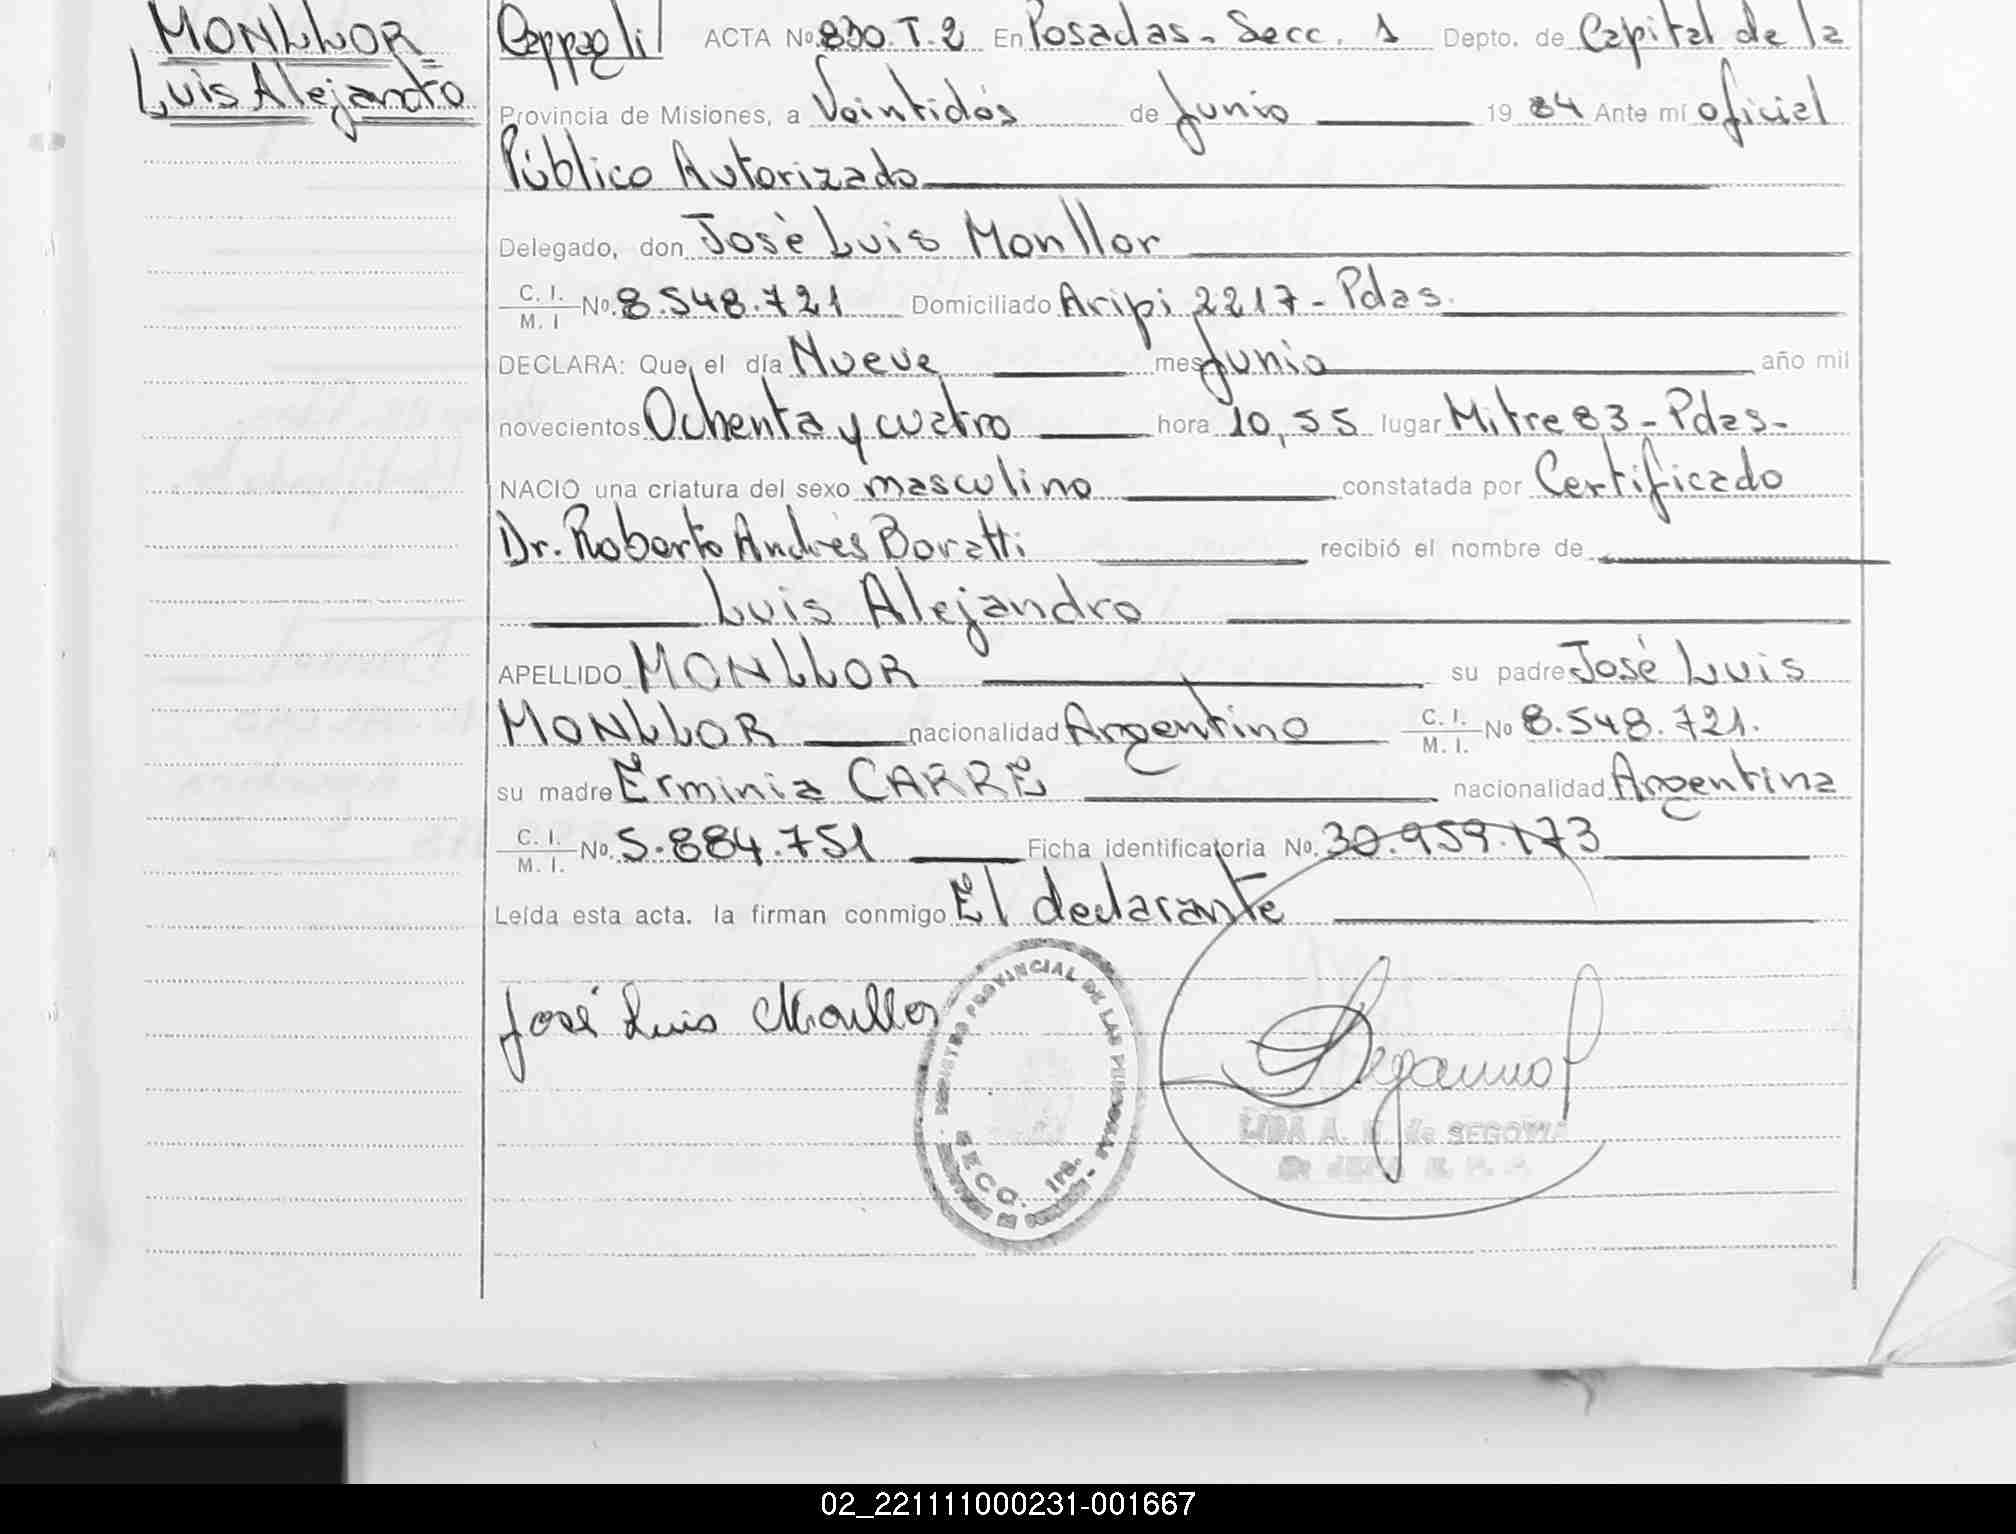 MONLLOR
Luis Alejandro
ACTA No. 830.T.2 En Posadas - Secc. 1 Depto. de Capital de la
Provincia de Misiones, a Veintidós de Junio 19 84 Ante mí oficial
Público Autorizado
Delegado, don José Luis Monllor
C. I. M. I No. 8.548.721 Domiciliado Aripi 2217 - Pdas.
DECLARA: Que, el día Nueve mes Junio año mil
novecientos Ochenta y cuatro hora 10,55 lugar Mitre 83 - Pdas-
NACIO una criatura del sexo masculino constatada por Certificado
Dr. Roberto Andrés Boratti recibió el nombre de
Luis Alejandro
APELLIDO MONLLOR su padre José Luis
MONLLOR nacionalidad Argentino C. I. M. I. No 8.548.721.
su madre Erminia CARRE nacionalidad Argentina
C. I. M. I. No. 5.884.751 Ficha identificatoria No. 30.959.173
Leída esta acta, la firman conmigo El declarante
José Luis Monllor
REGISTRO PROVINCIAL DE LAS PERSONAS
SECC. 1ra.
LIDA A. de SEGOVIA
02_221111000231-001667